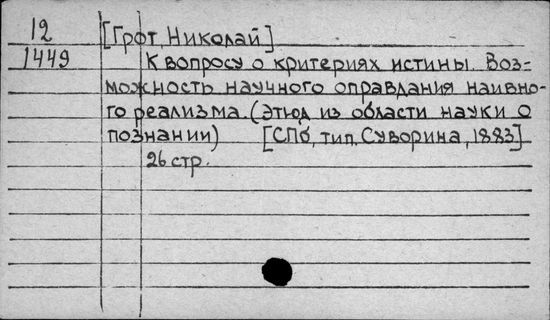 12
1449
[Грот, Николай]
К вопросу о критериях истины. Воз-
можность научного оправдания наивно-
го реализма. (этюд из области науки о
познании) [СПб, тип. Суворина, 1883]
26 стр.